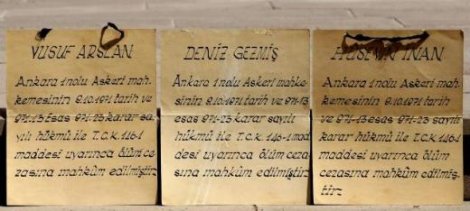 YUSUF ARSLAN
Ankara 1 nolu Askeri mah-
kemesinin 9.10.1971 tarih ve
971-13 Esas 971-23 karar sa-
yılı hükmü ile T.C.K. 146-1
maddesi uyarınca ölüm ce-
zasına mahkûm edilmiştir.
DENİZ GEZMİŞ
Ankara 1 nolu Askeri mahke-
sinin 9.10.1971 tarih ve 971-13
esas 971-23 karar sayılı
hükmü ile T.C.K. 146-1 mad-
desi uyarınca ölüm ceza-
sına mahkûm edilmiştir.
HÜSEYİN İNAN
Ankara 1 nolu Askeri mah-
kemesinin 9.10.1971 tarih ve
971-13 esas 971-23 sayılı
karar hükmü ile T.C.K. 146/1
maddesi uyarınca ölüm
cezasına mahkûm edilmiş-
tir.